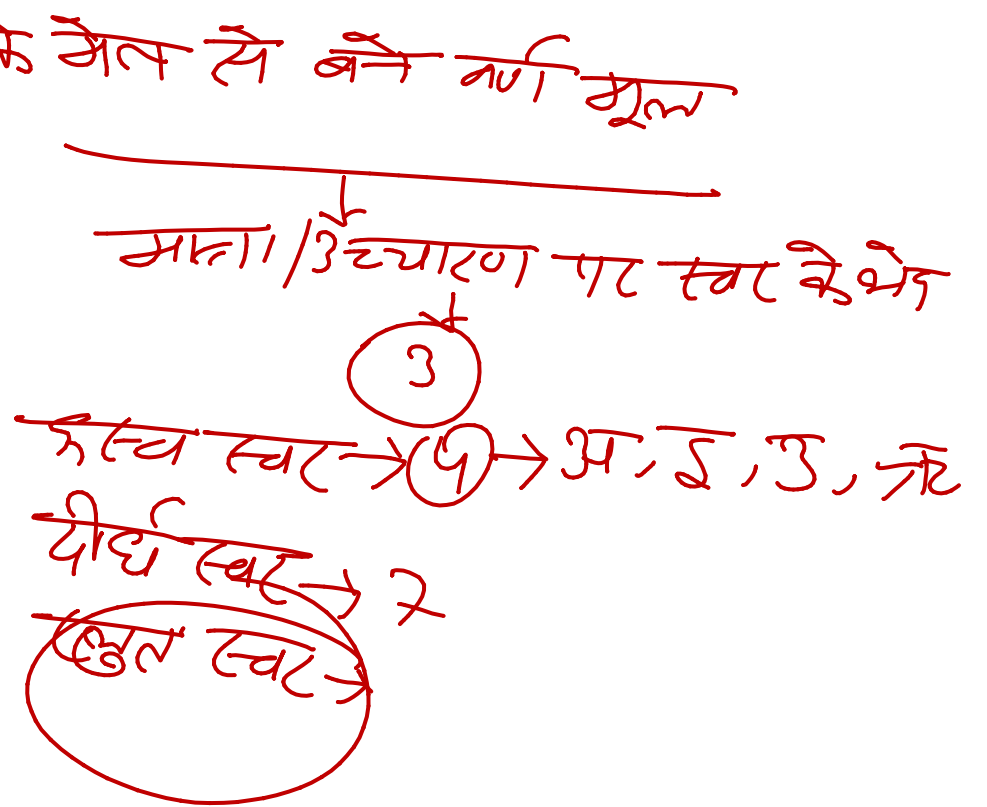 के मेल से बने वर्ण मूल
मात्रा/उच्चारण पर स्वर के भेद
3
ह्रस्व स्वर → 4 → अ, इ, उ, ऋ
दीर्घ स्वर → 7
प्लुत स्वर →